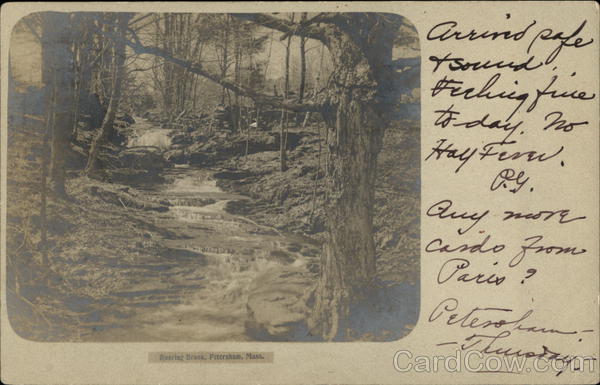 Arrived safe
& sound.
Feeling fine
to-day. No
Hay Fever.
P.G.
Any more
cards from
Paris?
Petersham -
- Thursday -
Roaring Brook, Petersham, Mass.
CardCow.com